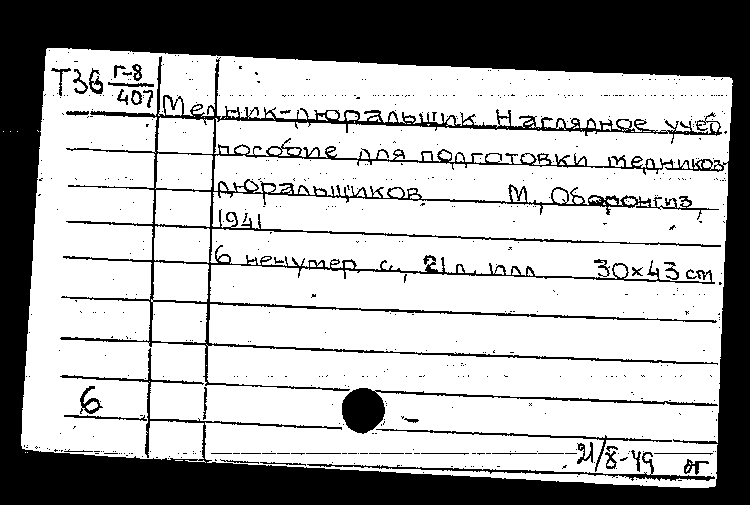 Т36 Г-8/407
Медник-дюральщик. Наглядное учеб.
пособие для подготовки медников-
дюральщиков. М., Оборонгиз,
1941.
6 ненумер. с., 21 л. илл. 30×43 cm.
6
21/8-49 ог